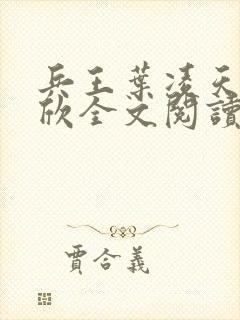 兵王葉凌天
欣全文閱讀
賈合義